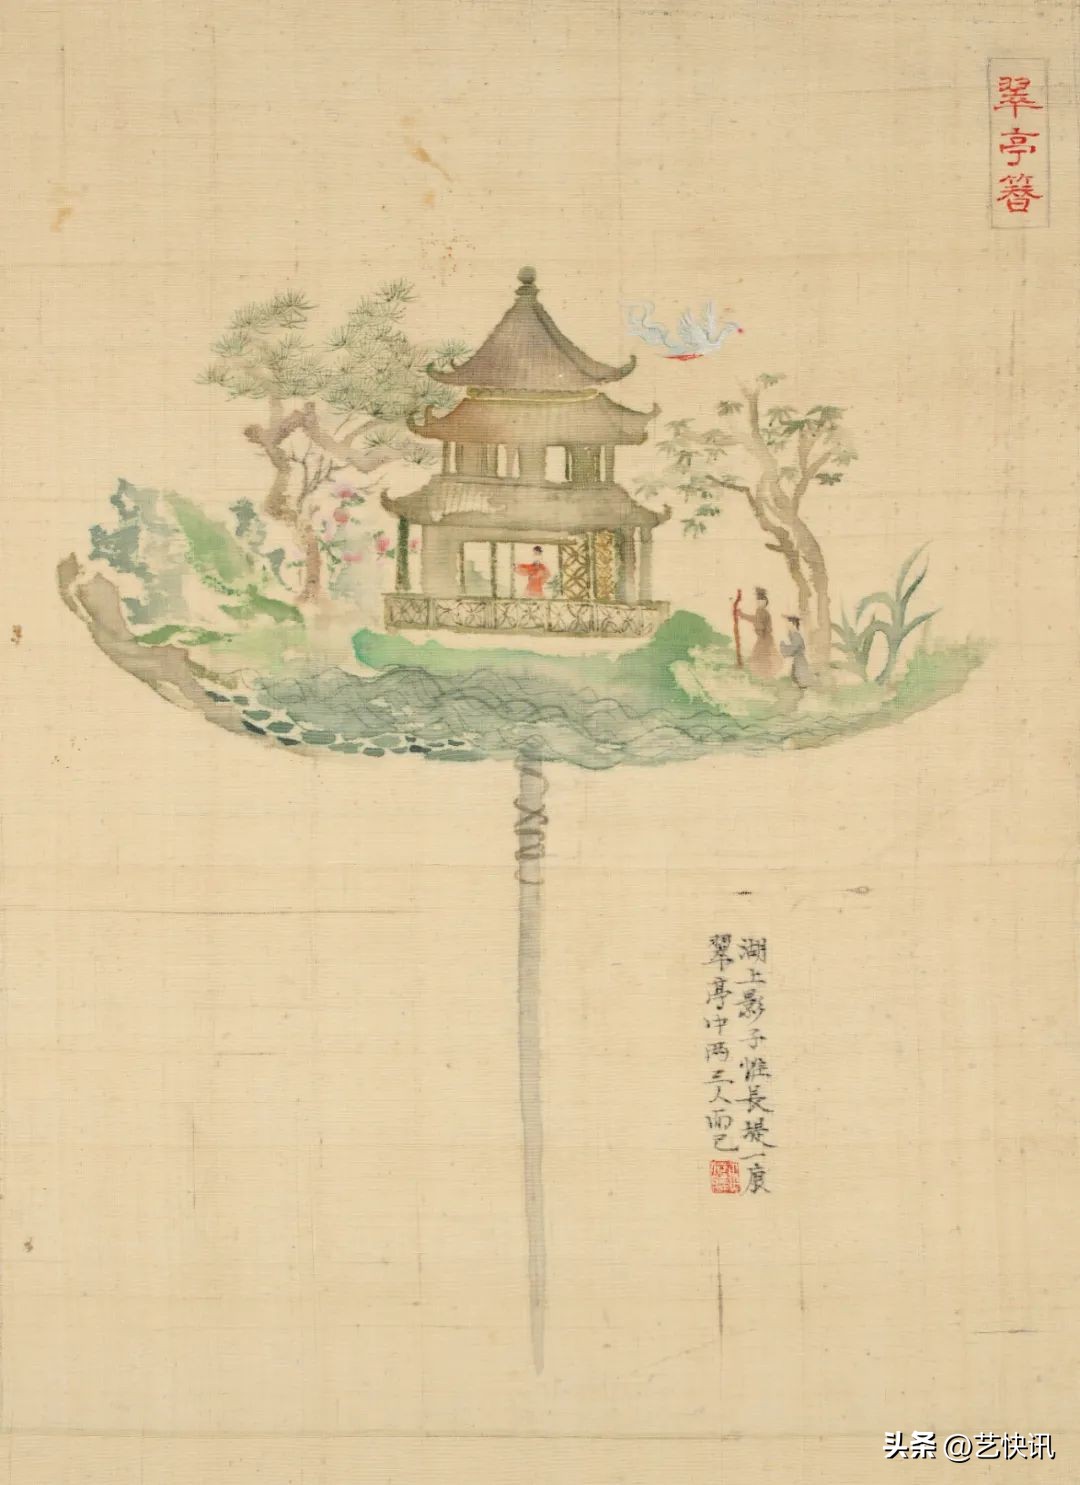 翠亭簪
湖上影子惟長堤一痕
翠亭中两三人而已
头条 @艺快讯